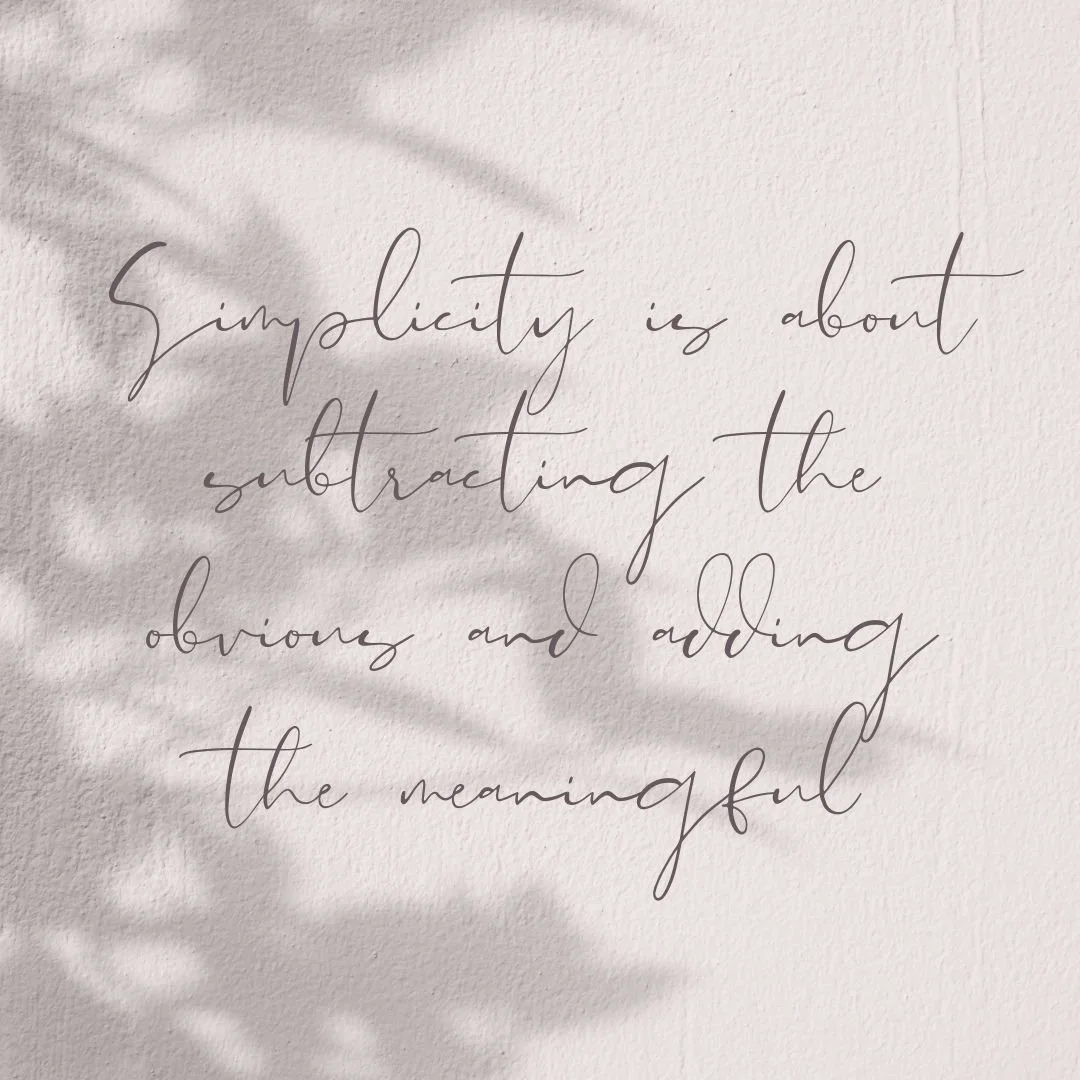 Simplicity is about
subtracting the
obvious and adding
the meaningful